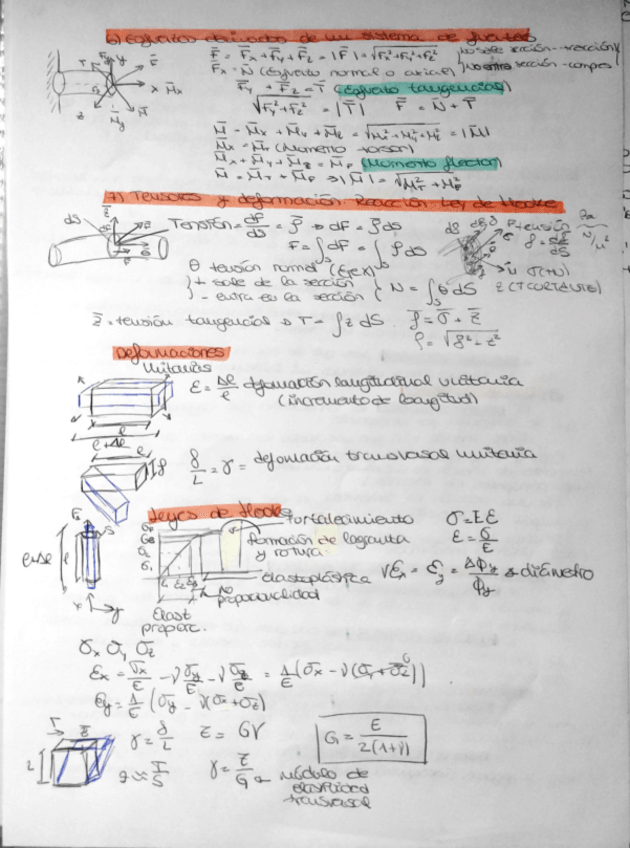 6) Esfuerzos derivados de un sistema de fuerzas
F̄ = F̄x + F̄y + F̄z = |F̄| = √Fx²+Fy²+Fz²
F̄x = N̄ (Esfuerzo normal o axical)
F̄y + F̄z = T̄ (Esfuerzo tangencial)
√Fy²+Fz² = |T̄| F̄ = N̄ + T̄
M̄ = M̄x + M̄y + M̄z = √Mx²+My²+Mz² = |M̄|
M̄x = M̄T (Momento torsor)
M̄y + M̄z = M̄F (Momento flector)
M̄ = M̄T + M̄F ⇒ |M̄| = √MT² + MF²
7) Tensores y deformación. Reacción Ley de Hooke
Tensión = dF/dS = ρ̄ ⇒ dF = ρ̄ dS
F = ∫s dF = ∫s ρ dS
σ tensión normal
+ sale de la sección
- entra en la sección
N = ∫s σ dS
τ̄ = tensión tangencial ⇒ T = ∫ τ dS
ρ̄ = σ̄ + τ̄
Deformaciones
unitarias
ε = Δl/l deformación longitudinal unitaria
(incremento de longitud)
l
l + Δl
δ/L = γ = deformación transversal unitaria
Leyes de Hooke
fortalecimiento
formación de garganta
y rotura
elastoplástica
no proporcionalidad
Elast
proporc.
σ = E ε
ε = σ/E
νεx = εy = ΔΦy/Φy → diámetro
σx σy σz
εx = σx/E - ν σy/E - ν σz/E = 1/E (σx - ν(σy + σz))
εy = 1/E (σy - ν(σx + σz))
γ = δ/L τ = Gγ
G = E / 2(1+ν)
γ = τ/G
módulo de
elasticidad
transversal